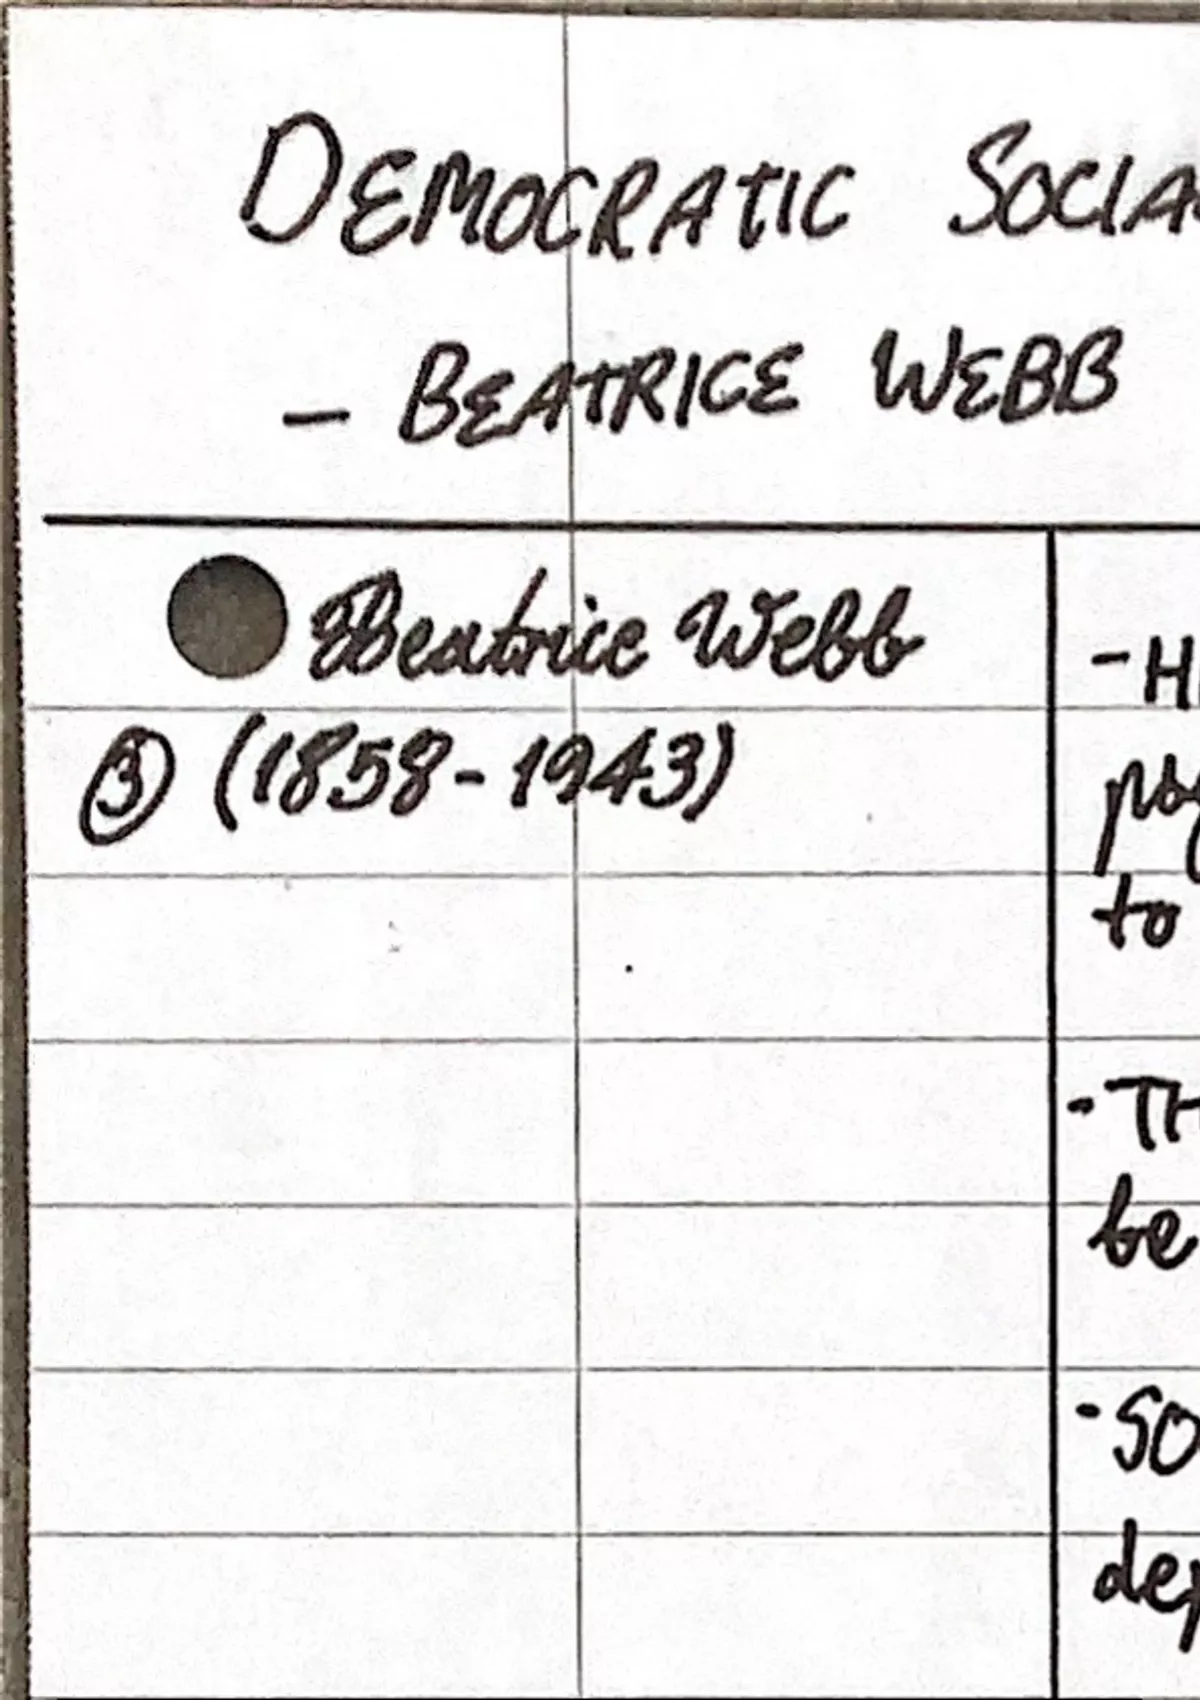 DEMOCRATIC SOCIA
- BEATRICE WEBB
Beatrice Webb
③ (1858-1943)
- H
to
- TH
be
- SO
dep